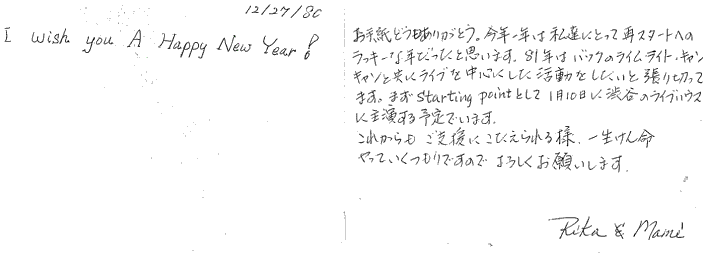 12/27/80
I wish you A Happy New Year!
お手紙どうもありがとう。今年一年は私達にとって再スタートへの
ラッキーな年だったと思います。81年はバックのライムライト・キャン
キャンと共にライブを中心にした活動をしたいと張り切って
ます。まずStarting pointとして1月10日に渋谷のライブハウス
に主演する予定でいます。
これからもご支援にこたえられる様、一生けん命
やっていくつもりですのでよろしくお願いします。
Rika & Mami